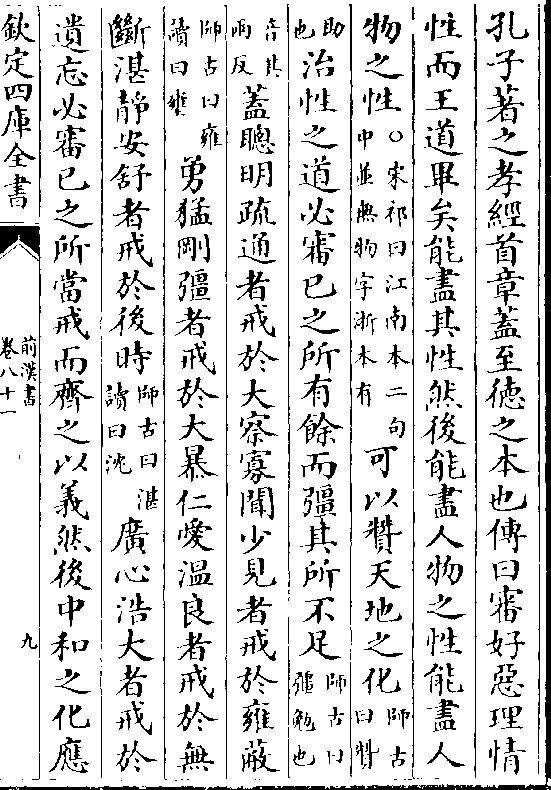 孔子著之孝經首章蓋至徳之本也傳曰審好惡理情
性而王道畢矣能盡其性然後能盡人物之性能盡人
物之性○宋祁曰江南本二句中並無物字浙本有可以賛天地之化師古曰賛
助也治性之道必審已之所有餘而彊其所不足師古曰彊勉也
音其兩反蓋聰明疏通者戒於大察寡聞少見者戒於雍蔽
師古曰雍讀曰壅勇猛剛彊者戒於大暴仁愛温良者戒於無
斷湛静安舒者戒於後時師古曰湛讀曰沈廣心浩大者戒於
遺忘必審已之所當戒而齊之以義然後中和之化應
欽定四庫全書
前漢書
卷八十一
九